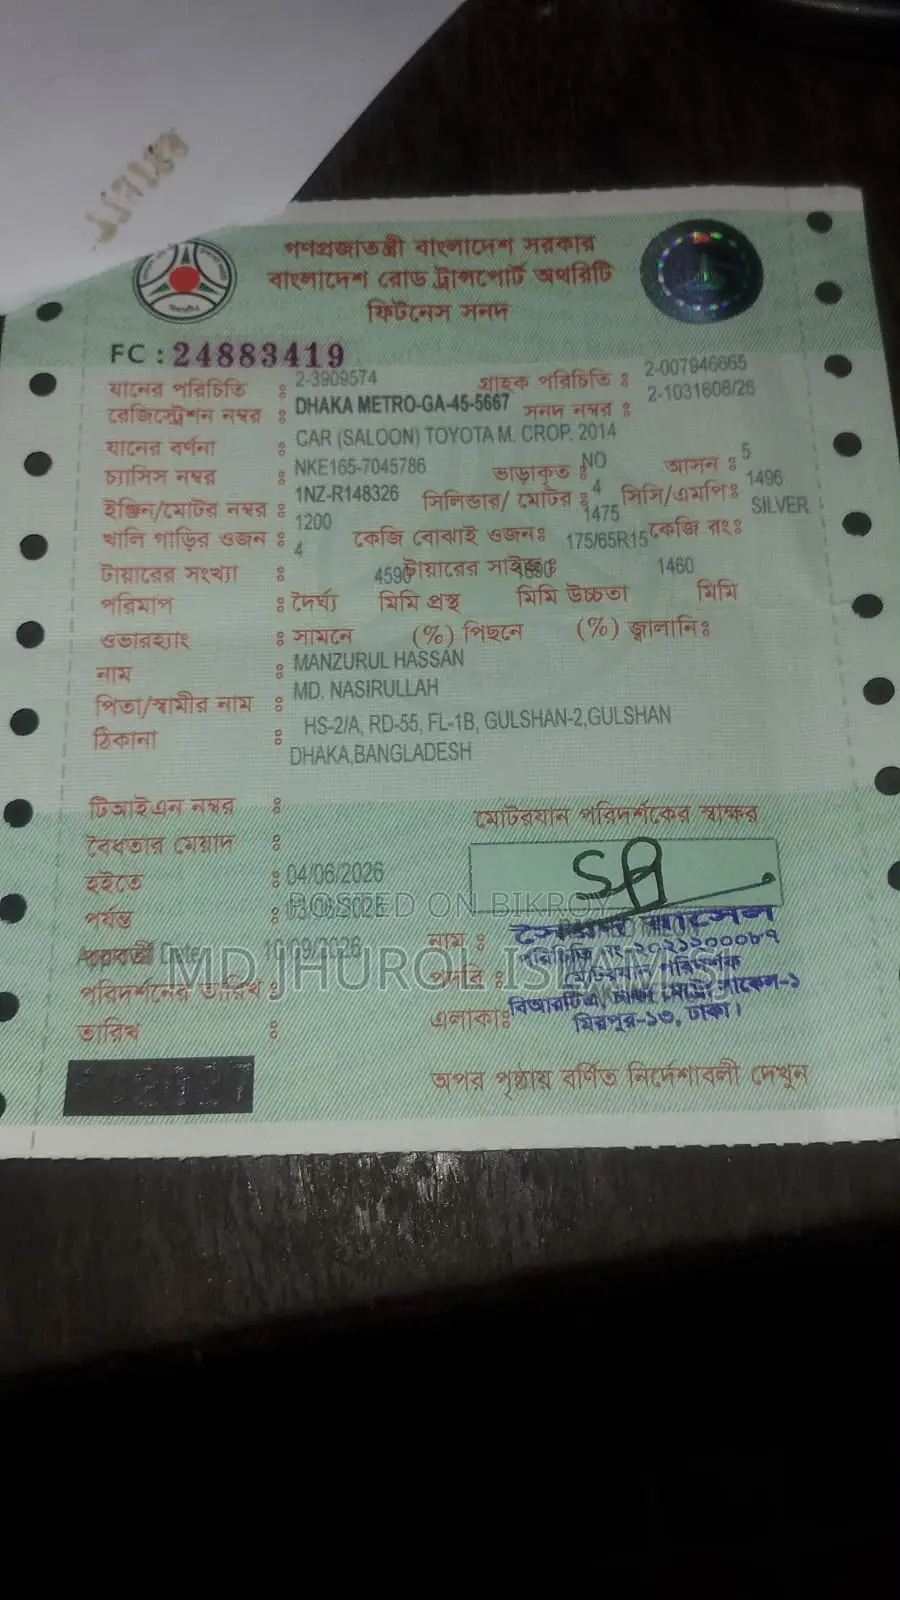 গণপ্রজাতন্ত্রী বাংলাদেশ সরকার
বাংলাদেশ রোড ট্রান্সপোর্ট অথরিটি
ফিটনেস সনদ
FC : 24883419
যানের পরিচিতি : 2-3909574 গ্রাহক পরিচিতি : 2-007946665
রেজিস্ট্রেশন নম্বর : DHAKA METRO-GA-45-5667 সনদ নম্বর : 2-1031608/26
যানের বর্ণনা : CAR (SALOON) TOYOTA M. CROP. 2014
চ্যাসিস নম্বর : NKE165-7045786 ভাড়াকৃত : NO আসন : 5
ইঞ্জিন/মোটর নম্বর : 1NZ-R148326 সিলিন্ডার/ মোটর : 4 সিসি/এমপি: 1496
খালি গাড়ির ওজন : 1200 কেজি বোঝাই ওজন: 1475 কেজি রং: SILVER
টায়ারের সংখ্যা : 4 টায়ারের সাইজ: 175/65R15
পরিমাপ : দৈর্ঘ্য 4590 মিমি প্রস্থ মিমি উচ্চতা 1460 মিমি
ওভারহ্যাং : সামনে (%) পিছনে (%) জ্বালানি:
নাম : MANZURUL HASSAN
পিতা/স্বামীর নাম : MD. NASIRULLAH
ঠিকানা : HS-2/A, RD-55, FL-1B, GULSHAN-2,GULSHAN
DHAKA,BANGLADESH
টিআইএন নম্বর :
বৈধতার মেয়াদ :
মোটরযান পরিদর্শকের স্বাক্ষর
হইতে : 04/06/2026
পর্যন্ত :
POSTED ON BIKROY
Date 10/09/2026
নাম :
পরিদর্শনের তারিখ :
পদবি :
MD JHUROL ISLAM SJ
মোটরযান পরিদর্শক
তারিখ :
এলাকা:
মিরপুর-১৩, ঢাকা।
অপর পৃষ্ঠায় বর্ণিত নির্দেশাবলী দেখুন